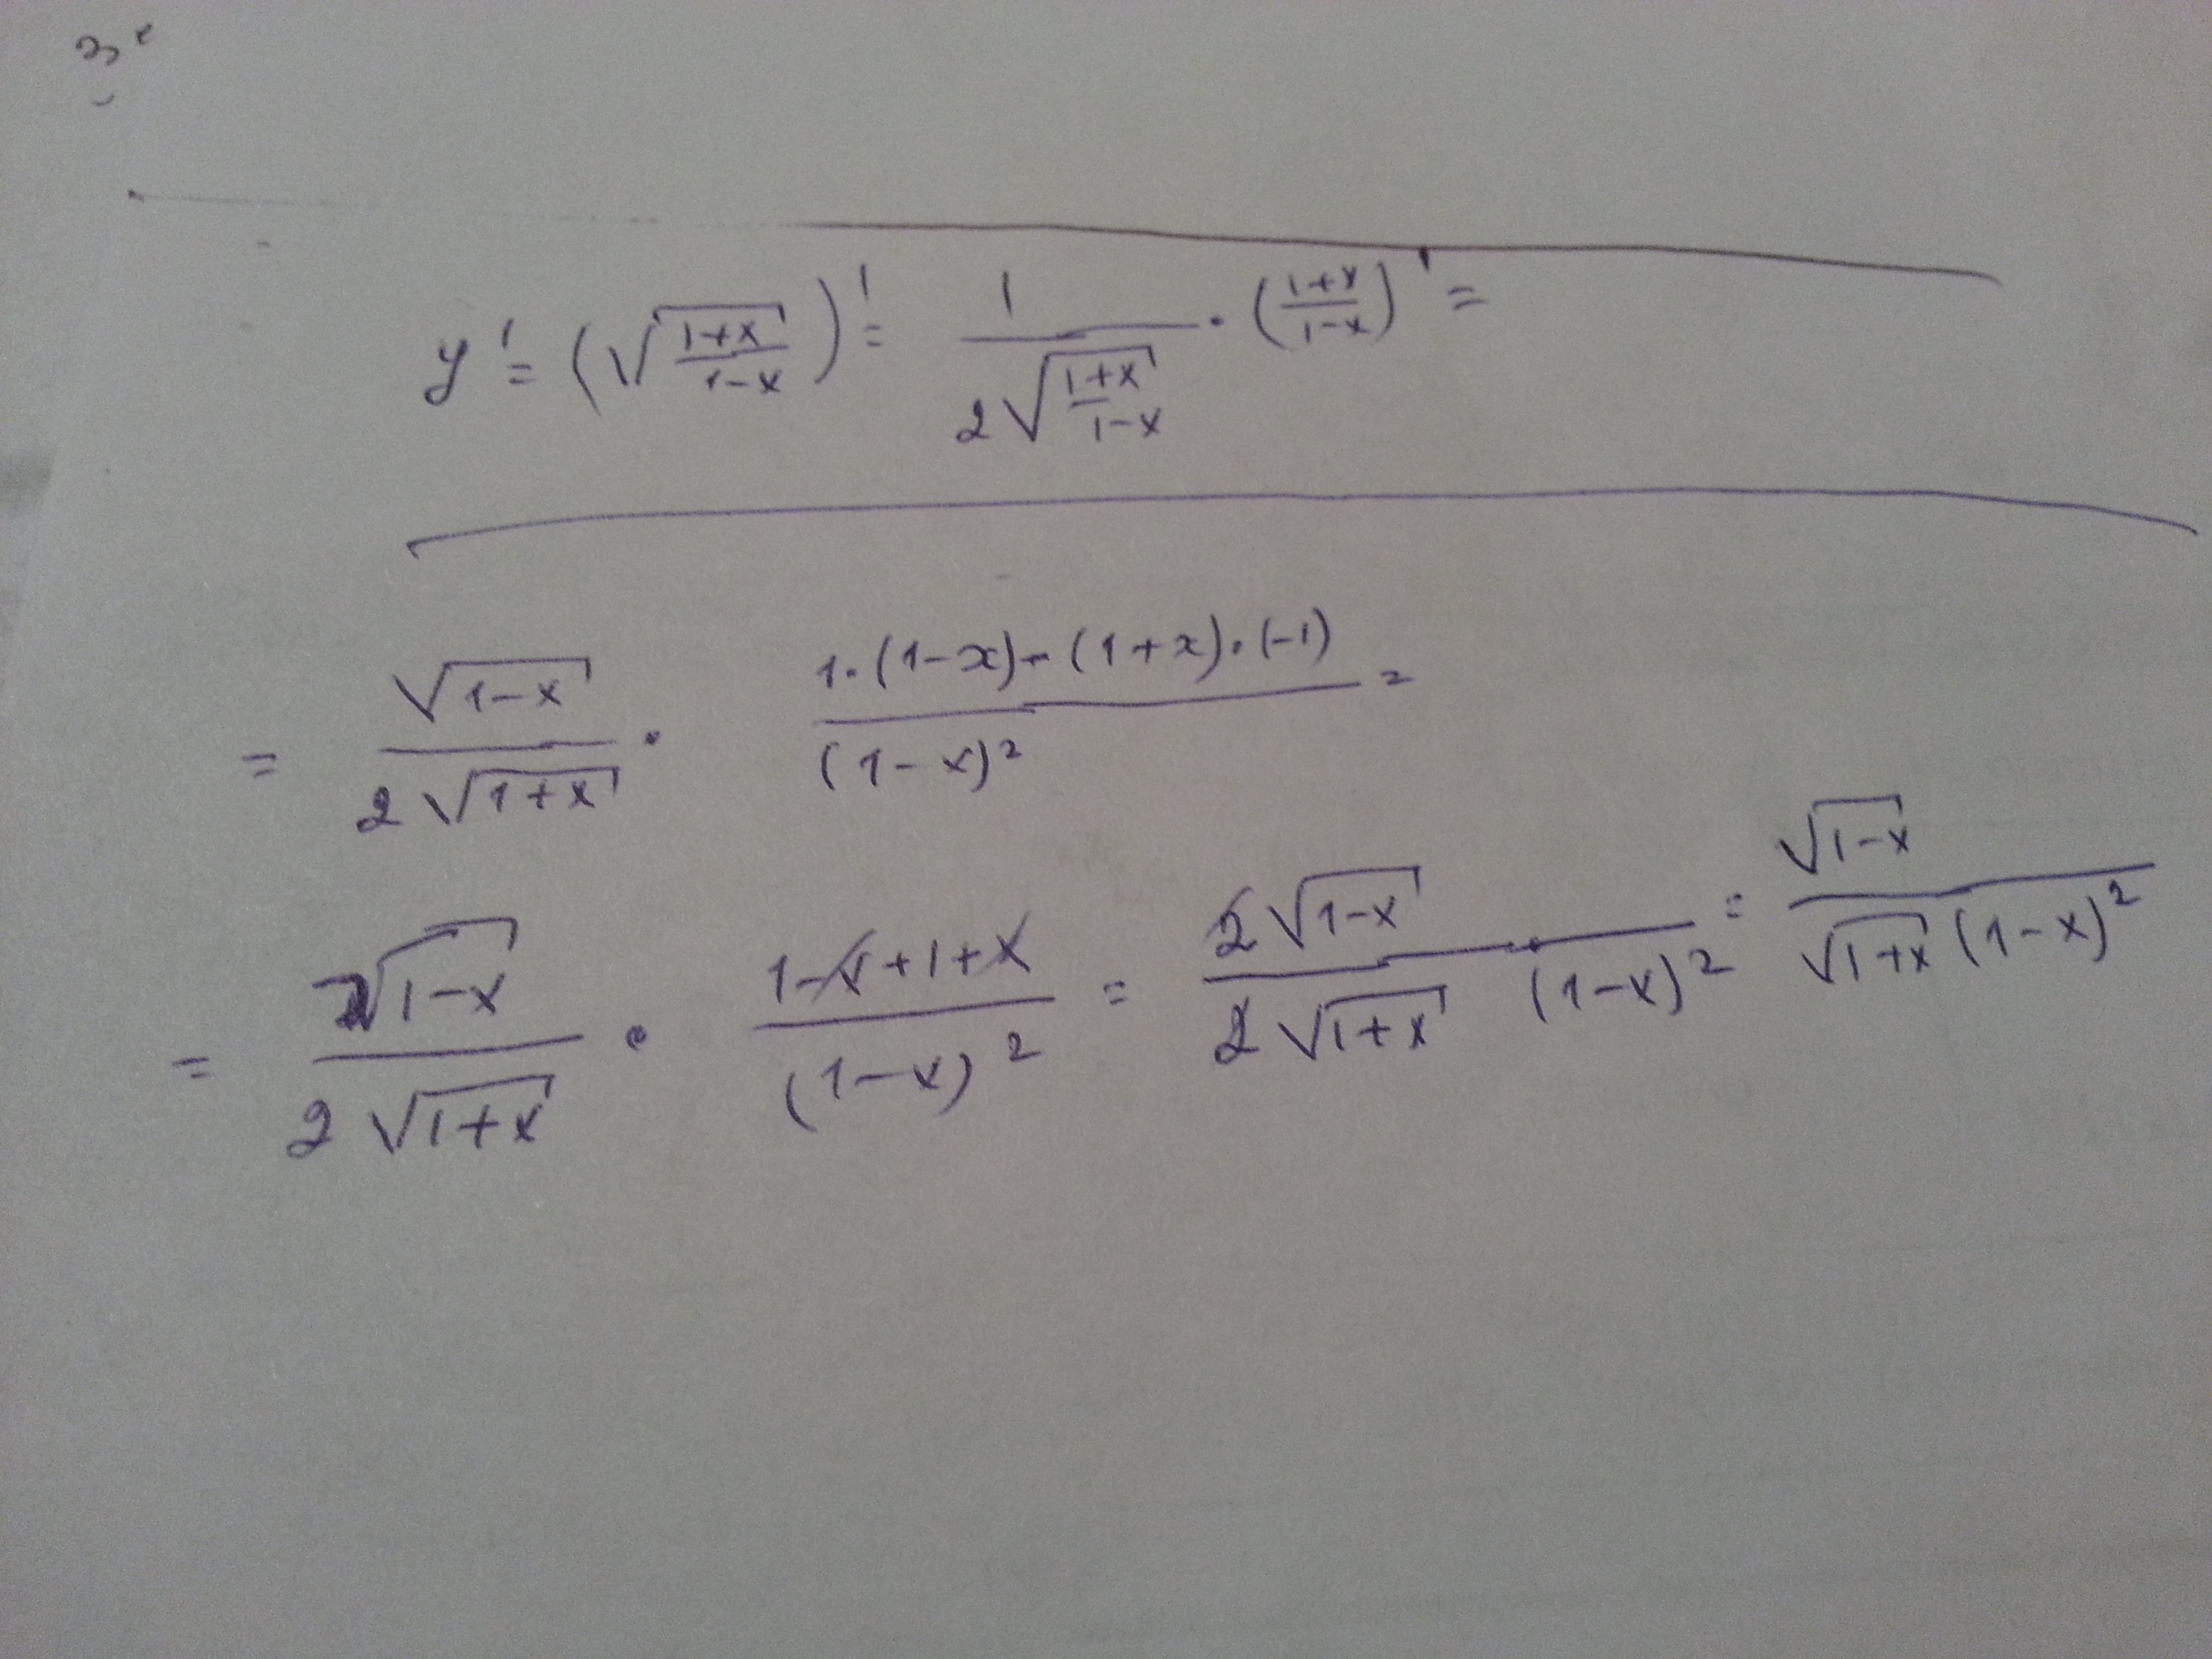 y' = (√((1+x)/(1-x)))' = 1/(2√((1+x)/(1-x))) · ((1+x)/(1-x))' =
= √(1-x)/(2√(1+x)) · (1·(1-x)-(1+x)·(-1))/(1-x)² =
= √(1-x)/(2√(1+x)) · (1-x+1+x)/(1-x)² = 2√(1-x)/(2√(1+x) (1-x)²) = √(1-x)/(√(1+x) (1-x)²)